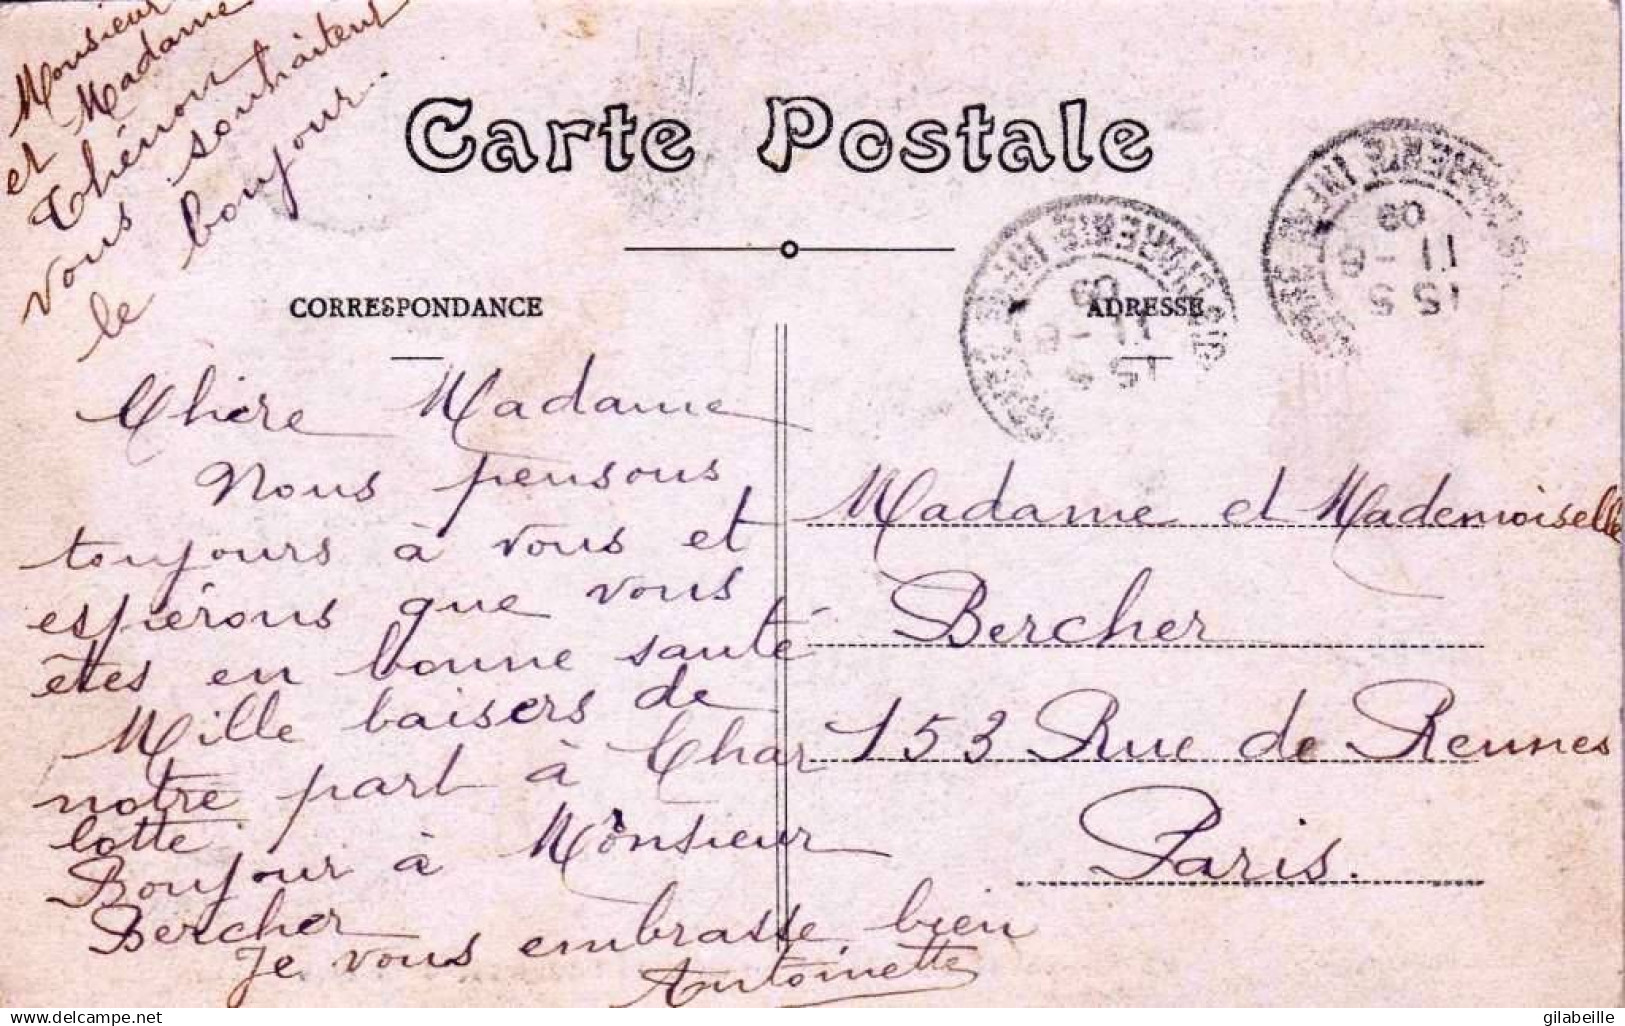 Monsieur
et Madame
Thénon
vous souhaitent
le bonjour.
Carte Postale
CORRESPONDANCE
ADRESSE
INFRE
09
11 - 8
15 5
INFRE
09
11 - 8
15 5
Chère Madame
Nous pensons
toujours à vous et
espérons que vous
êtes en bonne santé
Mille baisers de
notre part à Char
lotte
Bonjour à Monsieur
Bercher
Je vous embrasse bien
Antoinette
Madame et Mademoiselle
Bercher
153 Rue de Rennes
Paris.
www.delcampe.net
gilabeille